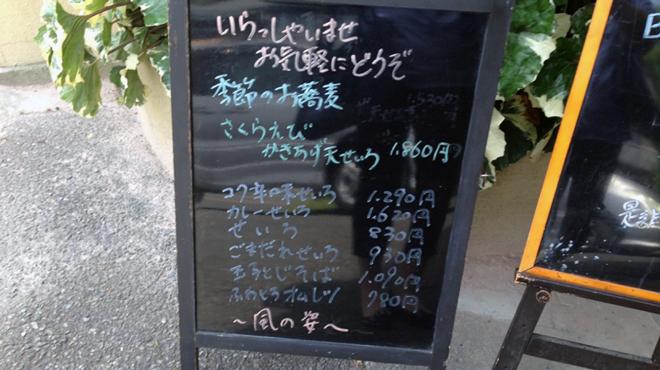 いらっしゃいませ
お気軽にどうぞ
季節のお蕎麦
さくらえび
かきあげ天せいろ 1.860円
コク辛口味せいろ 1.290円
カレーせいろ 1.620円
せいろ 830円
ごまだれせいろ 930円
玉子とじそば 1.090円
ふわとろオムレツ 780円
～風の姿～